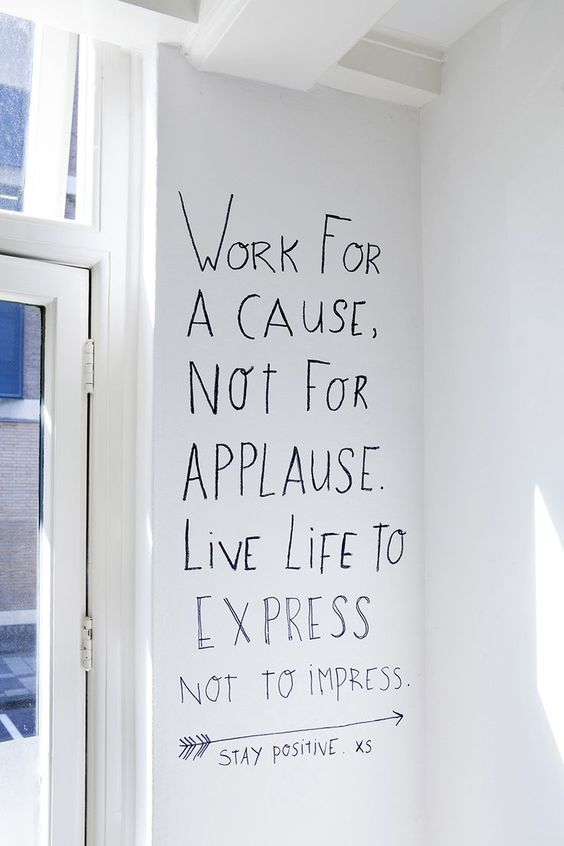 WORK FOR
A CAUSE,
NOT FOR
APPLAUSE.
LiVE LiFE TO
EXPRESS
NOT TO iMPRESS.
STAY POSiTiVE. XS